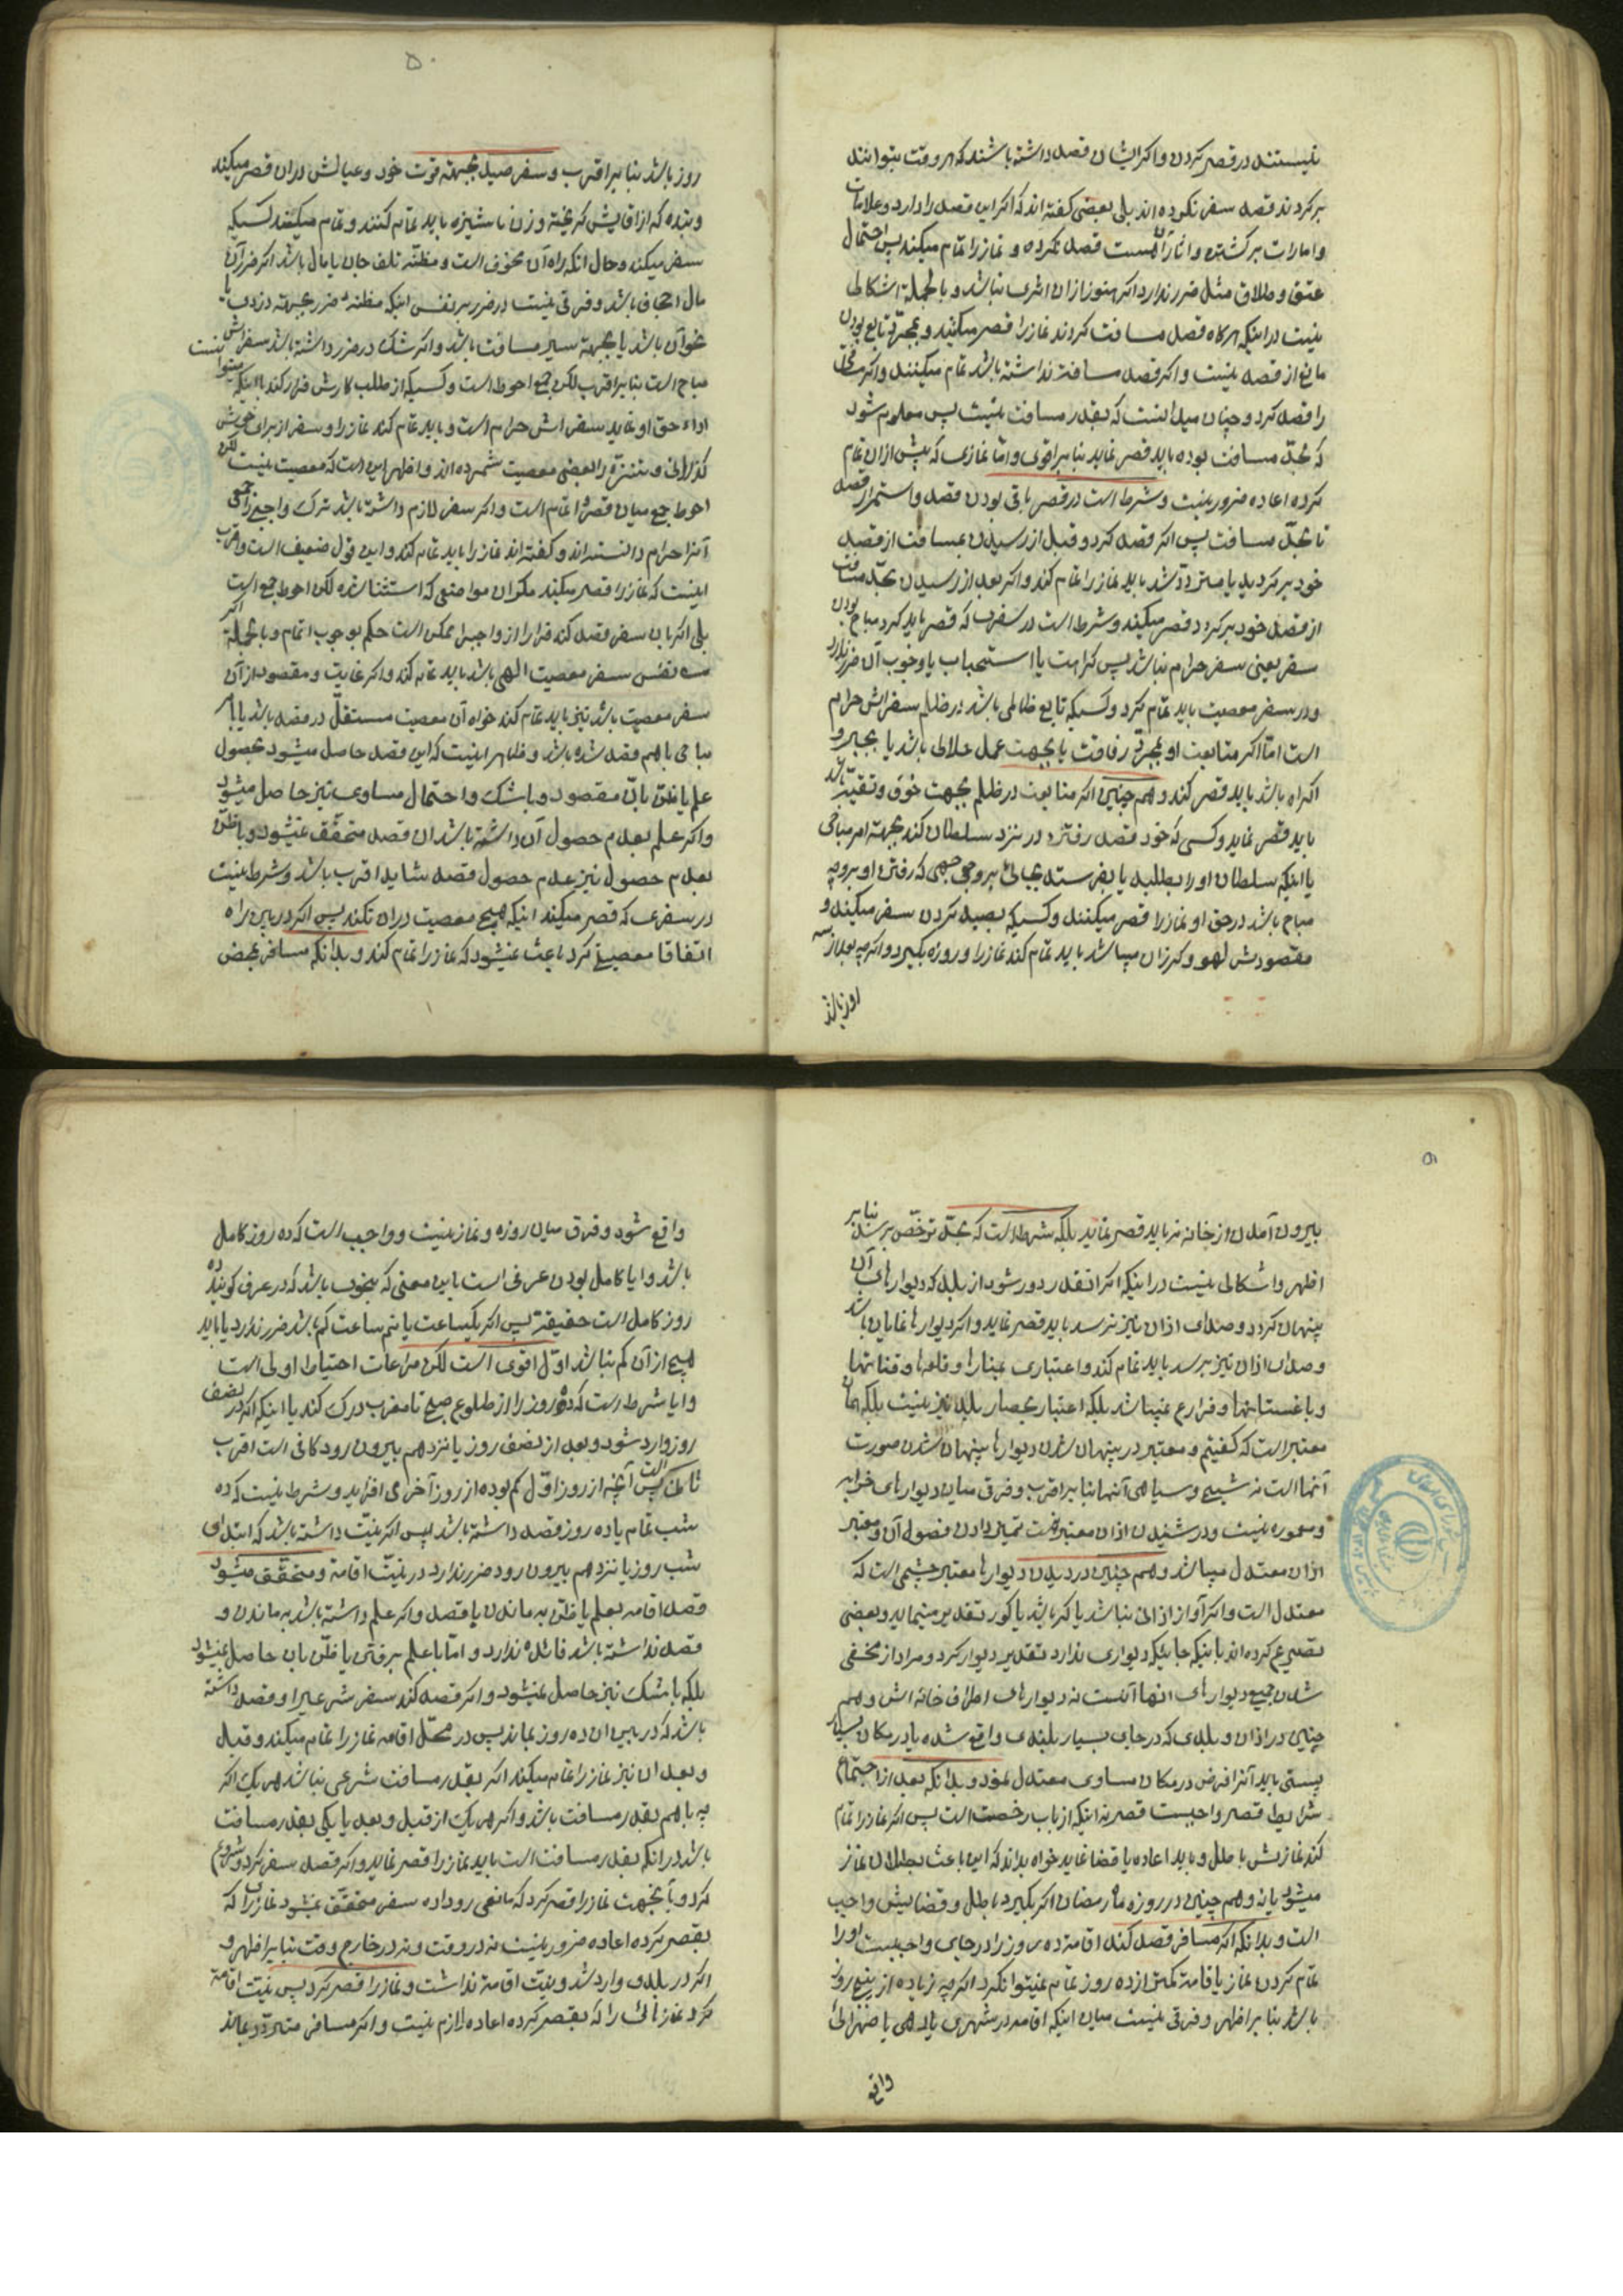 نیستند در قصر کردن و اکر ایشان قصد داشته باشند که هر وقت بتوانند
برکردند قصد سفر نکرده اند بلی بعضی کفته اند که اکر این قصد را دارد و علامات
و امارات برکشتن و اثار آن هست قصد نکرده و نماز را تمام میکند پس احتمال
عتق و طلاق مثل ضرر ندارد اکر هنوز از ان اثری نباشد و بالجملة اشکالی
نیست در اینکه هرکاه قصد مسافت کردند نماز را قصر میکنند و بمجرّد تابع بودن
مانع از قصد نیست و اکر قصد مسافت نداشته باشد تمام میکنند و اکر محلّی
را قصد کرد و چنان میدانست که بقدر مسافت نیست پس معلوم شود
که بحدّ مسافت بوده باید قصر نماید بنابر اقوی و امّا نمازی که پیش از ان تمام
کرده اعاده ضرور نیست و شرط است در قصر باقی بودن قصد و استمرار قصد
تا بحدّ مسافت پس اکر قصد کرد و قبل از رسیدن بمسافت از قصد
خود برکردید یا متردّد شد باید نماز را تمام کند و اکر بعد از رسیدن بحدّ مسافت
از قصد خود برکردد قصر میکند و شرط است در سفری که قصر باید کرد مباح بودن
سفر یعنی سفر حرام نباشد پس کراهت یا استحباب یا وجوب آن ضرر ندارد
و در سفر معصیت باید تمام کرد و کسیکه تابع ظالمی باشد در ظلم سفرش حرام
است امّا اکر متابعت او بمجرّد رفاقت یا بجهت عمل حلالی باشد یا بجبر و
اکراه باشد باید قصر کند و هم چنین اکر متابعت در ظلم بجهت خوف و تقیّه باشد
باید قصر نماید و کسی که خود قصد رفتن در نزد سلطان کند بجهة امر مباحی
یا اینکه سلطان او را بطلبد یا بفرستد بجائی بر وجهی که رفتن او بر وجه
مباح باشد در حق او نماز را قصر میکنند و کسیکه بصید کردن سفر میکند و
مقصودش لهو و کذران میباشد باید تمام کند نماز را و روزه بکیرد و اکر چه بعد از سه
روز باشد
۵۰
روز باشد بنابر اقرب و سفر صید بجهة قوت خود و عیالش در ان قصر میکند
و بنده که از اقایش کریخته و زن ناشیزه باید تمام کنند و تمام میکند کسیکه
سفر میکند و حال آنکه راه آن مخوف است و مظنّه تلف جان یا مال باشد اکر ضرر آن
مال اجحاف باشد و فرقی نیست در ضرر بر نفس اینکه مظنه ضرر بجهة دزدی یا
نحو آن باشد یا بجهة سیر مسافت باشد و اکر شک در ضرر داشته باشد سفرش
مباح است بنابر اقرب لکن جمع احوط است و کسیکه از طلب کارش فرار کند با اینکه میتواند
اداء حق او نماید سفرش حرام است و باید تمام کند نماز را و سفر از برای خوش
کذرانی و تنزّه را بعضی معصیت شمرده اند و اظهر این است که معصیت نیست لکن
احوط جمع میان قصر و اتمام است و اکر سفر لازم داشته باشد ترک واجبی را جمعی
آنرا حرام دانسته اند و کفته اند نماز را باید تمام کند و این قول ضعیف است و اقرب
اینست که نماز را قصر میکند مکر ان مواضعی که استثنا شده لکن احوط جمع است
بلی اکر بان سفر قصد کند فرار را از واجبی ممکن است حکم بوجوب اتمام و بالجملة اکر
نفس سفر معصیت الهی باشد باید تمام کند و اکر غایت و مقصود از آن
سفر معصیت باشد نیز باید تمام کند خواه آن معصیت مستقلّ در قصد باشد یا با
مباحی با هم قصد شده باشد و ظاهر اینست که این قصد حاصل میشود بحصول
علم یا ظنّ بان مقصود و با شک و احتمال مساوی نیز حاصل میشود
و اکر علم بعدم حصول آن داشته باشد ان قصد متحقّق نمیشود و با ظنّ
بعدم حصول نیز عدم حصول قصد شاید اقرب باشد و شرط نیست
در سفری که قصر میکند اینکه هیچ معصیت در ان نکند پس اکر در بین راه
اتفاقا معصیتی کرد باعث نمیشود که نماز را تمام کند و بدانکه مسافر بمحض
۵۱
بیرون آمدن از خانه نه باید قصر نماید بلکه شرط است که بحدّ ترخّص برسد بنابر
اظهر و اشکالی نیست در اینکه اکر انقدر دور شود از بلد که دیوارهای آن
پنهان کردد و صدای اذان نیز نرسد باید قصر نماید و اکر دیوارها نمایان باشد
و صدای اذان نیز برسد باید تمام کند و اعتباری بمنارها و قلعها و قناتها
و باغستانها و مزارع نمیباشد بلکه اعتبار بحصار بلد نیز نیست بلکه همان
معتبر است که کفتیم و معتبر در پنهان شدن دیوارها پنهان شدن صورت
آنها است نه شبح و سیاهی آنها بنابر اقرب و فرق میان دیوارهای خرابه
و معموره نیست و در شنیدن اذان معتبر نیست تمیز دادن فصول آن و معتبر
اذان معتدل میباشد و هم چنین در دیدن دیوارها معتبر چشمی است که
معتدل است و اکر آواز اذانی نباشد یا کر باشد یا کور تقدیر مینماید و بعضی
تصریح کرده اند باینکه جائیکه دیواری ندارد تقدیر دیوار کرد و مراد از مخفی
شدن جمیع دیوارهای انها آنست نه دیوارهای اطراف خانه اش و هم
چنین در اذان و بلدی که در جای بسیار بلندی واقع شده یا در مکان بسیار
پستی باید آنرا فرض در مکان مساوی معتدل نمود و بدانکه بعد از اجتماع
شرایط قصر واجبست قصر نه اینکه از باب رخصت است پس اکر نماز را تمام
کند نمازش باطل و باید اعاده یا قضا نماید خواه بداند که این باعث بطلان نماز
میشود یا نه و هم چنین در روزه ماه رمضان اکر بکیرد باطل و قضایش واجب
است و بدانکه اکر مسافر قصد کند اقامة ده روز را در جای واجبست او را
تمام کردن نماز یا قامة کمتر از ده روز تمام نمیتوانکرد اکر چه زیاده از پنج روز
باشد بنابر اظهر و فرقی نیست میان اینکه اقامه در شهری یا دهی یا صحرائی
واقع
واقع شود و فرق میان روزه و نماز نیست و واجب است که ده روز کامل
باشد و ایا کامل بودن عرفی است باین معنی که بنحوی باشد که در عرف کویند ده
روز کامل است حقیقة پس اکر یکساعت یا نیم ساعت کم باشد ضرر ندارد یا باید
هیچ از آن کم نباشد اوّل اقوی است لکن مراعات احتیاط اولی است
و ایا شرط است که ده روز را از طلوع صبح تا مغرب درک کند یا اینکه اکر در نصف
روز وارد شود و بعد از نصف روز یازدهم بیرون رود کافی است اقرب
ثانی است پس آنچه از روز اوّل کم بوده از روز آخر می افزاید و شرط نیست که ده
شب تمام یا ده روز قصد داشته باشد پس اکر نیّت داشته باشد که ابتدای
شب روز یازدهم بیرون رود ضرر ندارد در نیّت اقامة و متحقّق میشود
قصد اقامه بعلم یا ظن به ماندن یا قصد و اکر علم داشته باشد به ماندن و
قصد نداشته باشد فائده ندارد و امّا با علم برفتن یا ظنّ بان حاصل نمیشود
بلکه با شک نیز حاصل نمیشود و اکر قصد کند سفر شرعی را و قصد داشته
باشد که در بین ان ده روز بماند پس در محلّ اقامه نماز را تمام میکند و قبل
و بعد ان نیز نماز را تمام میکند اکر بقدر مسافت شرعی نباشد هر یک اکر
چه با هم بقدر مسافت باشد و اکر هر یک از قبل و بعد یا یکی بقدر مسافت
باشد در انکه بقدر مسافت است باید نماز را قصر نماید و اکر قصد سفر کرد و شروع
کرد و بآنجهت نماز را قصر کرد که مانعی رو داده سفر متحقّق نمیشود نمازی را که
بقصر کرده اعاده ضرور نیست نه در وقت و نه در خارج وقت بنابر اظهر و
اکر در بلدی وارد شد و نیّت اقامة نداشت و نماز را قصر کرد پس نیّت اقامة
کرد نمازهائی را که بقصر کرده اعاده لازم نیست و اکر مسافر متردّد بماند